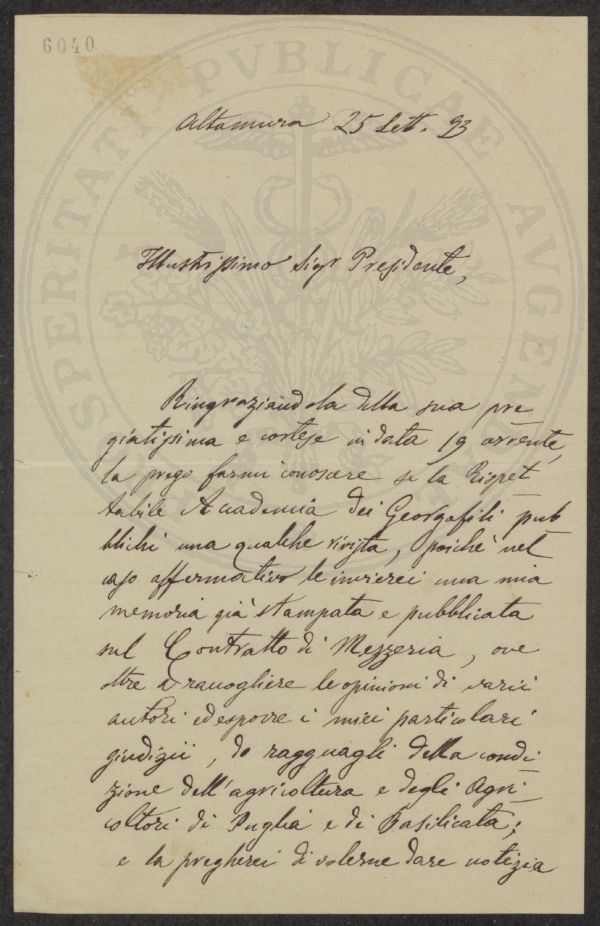 6040
Altamura 25 Sett. 93
Illustrissimo Sigr Presidente,
Ringraziandola della sua pre
giatissima e cortese in data 19 corrente,
la prego farmi conoscere se la Rispet
tabile Accademia dei Georgofili pub
blichi una qualche rivista, poichè nel
caso affermativo le invierei una mia
memoria già stampata e pubblicata
sul Contratto di Mezzeria, ove
oltre a raccogliere le opinioni di varii
autori ed esporre i miei particolari
giudizii, do ragguagli della condi
zione dell'agricoltura e degli Agri
coltori di Puglia e di Basilicata;
e la pregherei di volerne dare notizia
PROSPERITATI PVBLICAE AVGENDAE